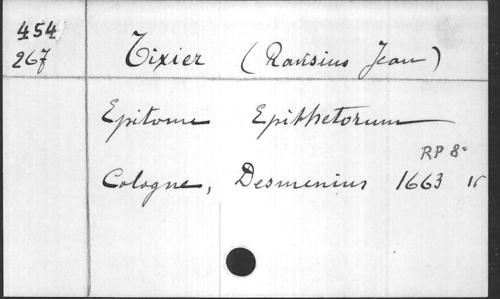 454
267
Tixier (Ravisius Jean)
Epitome Epithetorum
RP 8°
Cologne, Desmenius 1663 16